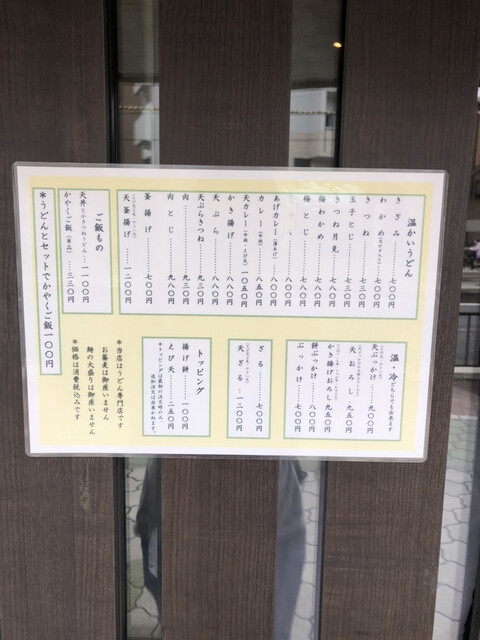 温かいうどん
きざみ………七〇〇円
わかめ
きつね………七三〇円
玉子とじ………七三〇円
きつね月見………七八〇円
梅わかめ………七八〇円
梅とじ
カレー
あげカレー
天カレー
一〇五〇円
かき揚げ………八八〇円
天ぷら………八八〇円
天ぷらきつね………九三〇円
肉………九三〇円
肉とじ………九八〇円
釜揚げ………七〇〇円
天釜揚げ………一二〇〇円
ご飯もの
天丼と小きつねうどん………一一〇〇円
かやくご飯（単品）………三三〇円
＊うどんとセットでかやくご飯一〇〇円
温・冷どちらでも出来ます
天ぶっかけ………九〇〇円
天おろし………九五〇円
かき揚げおろし九五〇円
餅ぶっかけ………八〇〇円
ぶっかけ………七〇〇円
ざる………七〇〇円
天ざる………一二〇〇円
トッピング
揚げ餅………一〇〇円
えび天………二五〇円
＊トッピングは最初の注文時のみ
追加注文は出来かねます
＊当店はうどん専門店です
お蕎麦は御座いません
麺の大盛りは御座いません
＊価格は消費税込みです